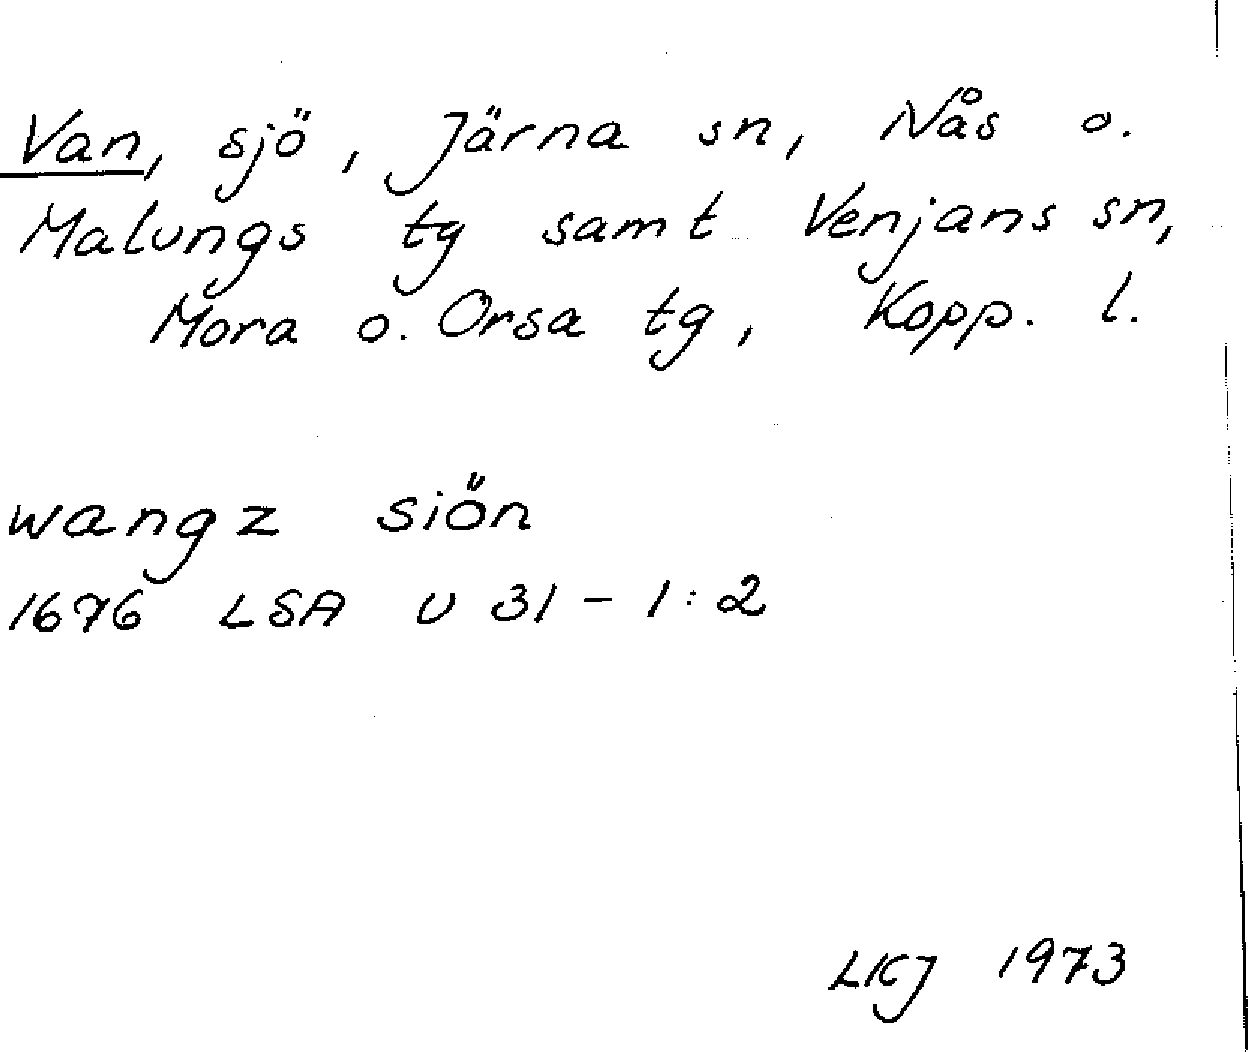 Van, sjö, Järna sn, Nås o.
Malungs tg samt Venjans sn,
Mora o. Orsa tg, Kopp. l.
wangz siön
1676 LSA U 31 - 1:2
LKJ 1973